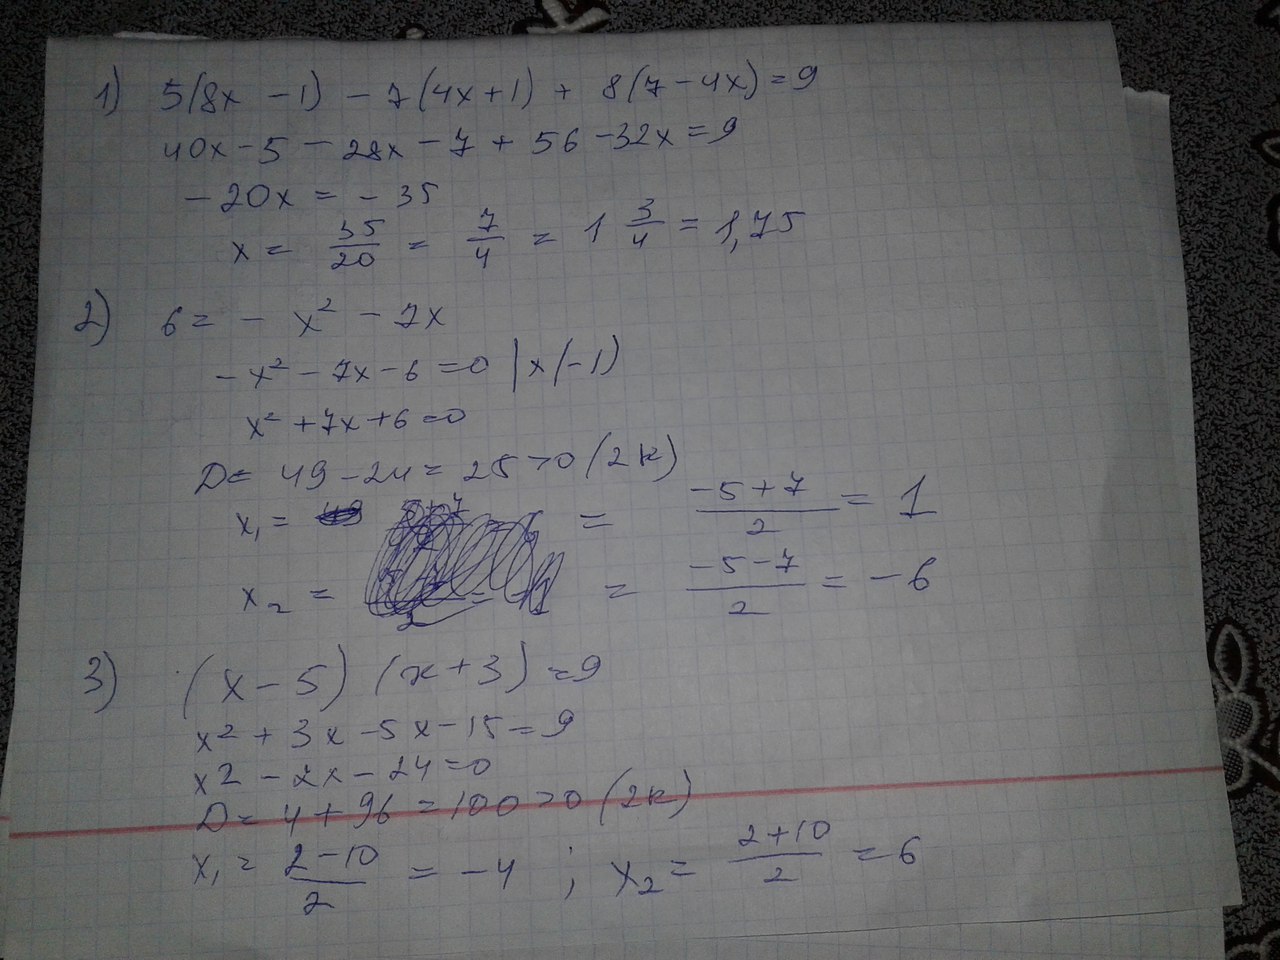 1) 5(8x - 1) - 7(4x+1) + 8(7-4x)=9
40x-5 - 28x - 7 + 56 - 32x = 9
-20x = -35
x = 35/20 = 7/4 = 1 3/4 = 1,75
2) 6 = - x² - 7x
-x² - 7x - 6 = 0 | x(-1)
x² + 7x + 6 = 0
D = 49 - 24 = 25 > 0 (2к)
x₁ = = (-5+7)/2 = 1
x₂ = = (-5-7)/2 = -6
3) (x - 5) (x+3) = 9
x² + 3x - 5x - 15 = 9
x² - 2x - 24 = 0
D = 4 + 96 = 100 > 0 (2к)
x₁ = (2-10)/2 = -4 ; x₂ = (2+10)/2 = 6